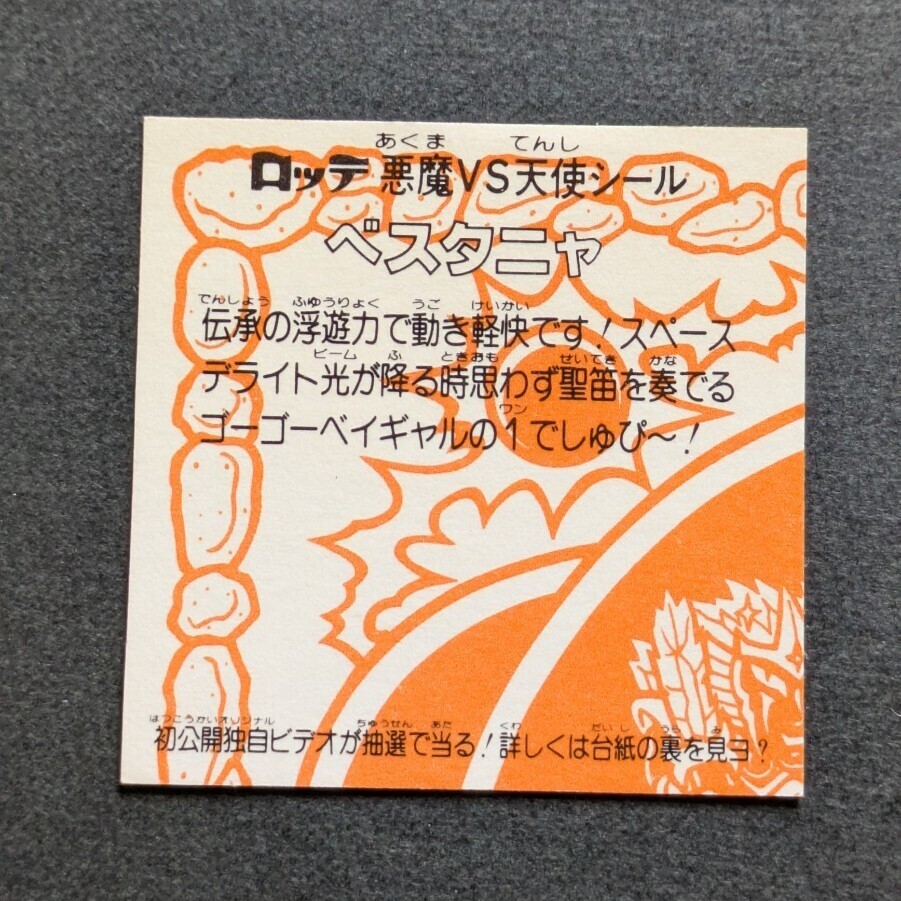 あくま てんし
ロッテ 悪魔VS天使シール
ベスタニャ
でんしょう ふゆうりょく うご けいかい
伝承の浮遊力で動き軽快です！スペース
ビーム ふ ときおも せいてき かな
デライト光が降る時思わず聖笛を奏でる
ワン
ゴーゴーベイギャルの1でしゅぴ〜！
はつこうかいオリジナル ちゅうせん あた くわ だいし うら み
初公開独自ビデオが抽選で当る！詳しくは台紙の裏を見ヨ？